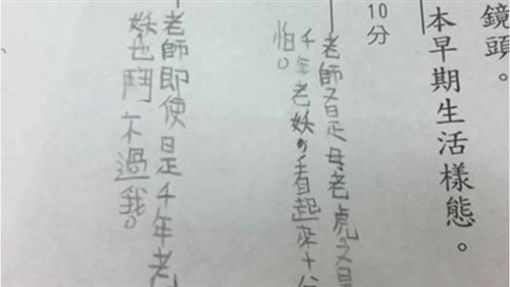 鏡頭。
本早期生活樣態。
10分
老師又是母老虎又是
千年老妖，看起來十分
怕。
老師即使是千年老
妖也鬥不過我。